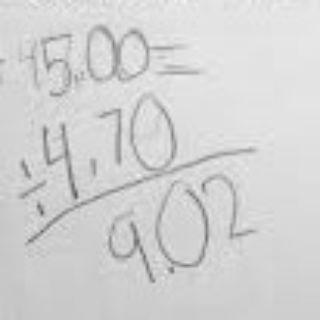 45.00=
÷4.70
9.02